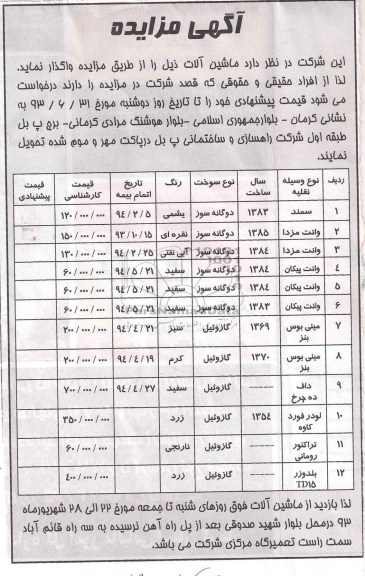 آگهی مزایده
این شرکت در نظر دارد ماشین آلات ذیل را از طریق مزایده واگذار نماید.
لذا از افراد حقیقی و حقوقی که قصد شرکت در مزایده را دارند درخواست
می شود قیمت پیشنهادی خود را تا تاریخ روز دوشنبه مورخ ۳۱ / ۶ / ۹۳ به
نشانی کرمان - بلوارجمهوری اسلامی -بلوار هوشنگ مرادی کرمانی- برج پ بل
طبقه اول شرکت راهسازی و ساختمانی پ بل درپاکت مهر و موم شده تحویل
نمایند.
ردیف نوع وسیله نقلیه سال ساخت نوع سوخت رنگ تاریخ اتمام بیمه قیمت کارشناسی قیمت پیشنهادی
۱ سمند ۱۳۸۳ دوگانه سوز یشمی ۹۴/۲/۵ ۱۲۰/۰۰۰/۰۰۰
۲ وانت مزدا ۱۳۸۵ دوگانه سوز نقره ای ۹۳/۱۰/۱۵ ۱۵۰/۰۰۰/۰۰۰
۳ وانت مزدا ۱۳۸۴ دوگانه سوز آبی نفتی ۹۴/۲/۲۵ ۱۳۰/۰۰۰/۰۰۰
۴ وانت پیکان ۱۳۸۴ دوگانه سوز سفید ۹۴/۵/۲۱ ۶۰/۰۰۰/۰۰۰
۵ وانت پیکان ۱۳۸۴ دوگانه سوز سفید ۹۴/۵/۲۱ ۶۰/۰۰۰/۰۰۰
۶ وانت پیکان ۱۳۸۳ دوگانه سوز سفید ۹۴/۵/۲۱ ۶۰/۰۰۰/۰۰۰
۷ مینی بوس بنز ۱۳۶۹ گازوئیل سبز ۹۴/۴/۲۱ ۲۰۰/۰۰۰/۰۰۰
۸ مینی بوس بنز ۱۳۷۰ گازوئیل کرم ۹۴/۴/۱۹ ۲۰۰/۰۰۰/۰۰۰
۹ داف ده چرخ ----- گازوئیل سفید ۹۴/۴/۲۷ ۷۰۰/۰۰۰/۰۰۰
۱۰ لودر فورد کاوه ۱۳۵۴ گازوئیل زرد ۳۵۰/۰۰۰/۰۰۰
۱۱ تراکتور رومانی ----- گازوئیل نارنجی ۶۰/۰۰۰/۰۰۰
۱۲ بلدوزر TD15 ----- گازوئیل زرد ۴۰۰/۰۰۰/۰۰۰
لذا بازدید از ماشین آلات فوق روزهای شنبه تا جمعه مورخ ۲۲ الی ۲۸ شهریورماه
۹۳ درمحل بلوار شهید صدوقی بعد از پل راه آهن نرسیده به سه راه قائم آباد
سمت راست تعمیرگاه مرکزی شرکت می باشد.